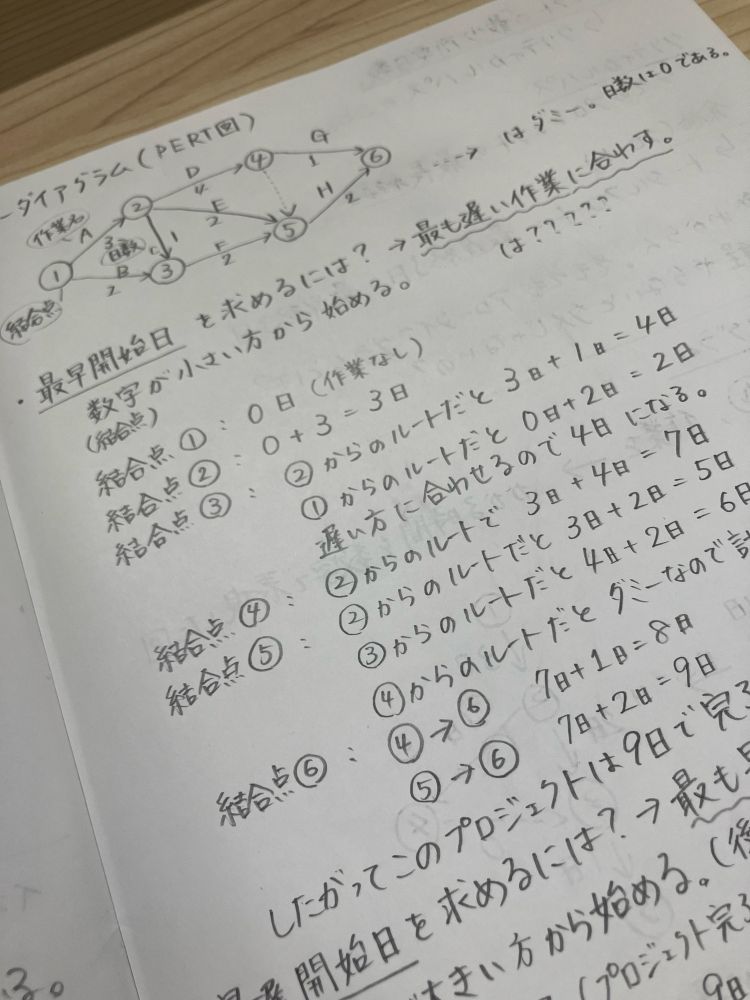 ーダイアグラム(PERT図)
作業名
日数
結合点
① ② ③ ④ ⑤ ⑥
A 3
B 2
C 1
D 4
E 2
F 2
G 1
H 2
⋯→ はダミー。日数は0である。
・最早開始日 を求めるには?→最も遅い作業に合わす。
は?????
数字が小さい方から始める。
(結合点)
結合点①:0日(作業なし)
結合点②:0+3=3日
結合点③:②からのルートだと 3日+1日=4日
①からのルートだと 0日+2日=2日
遅い方に合わせるので4日になる。
結合点④:②からのルートで 3日+4日=7日
結合点⑤:②からのルートだと 3日+2日=5日
③からのルートだと 4日+2日=6日
④からのルートだと ダミーなので計
結合点⑥:④→⑥ 7日+1日=8日
⑤→⑥ 7日+2日=9日
したがってこのプロジェクトは9日で完
開始日を求めるには?→最も
大きい方から始める。(後
(プロジェクト完
9日
る。